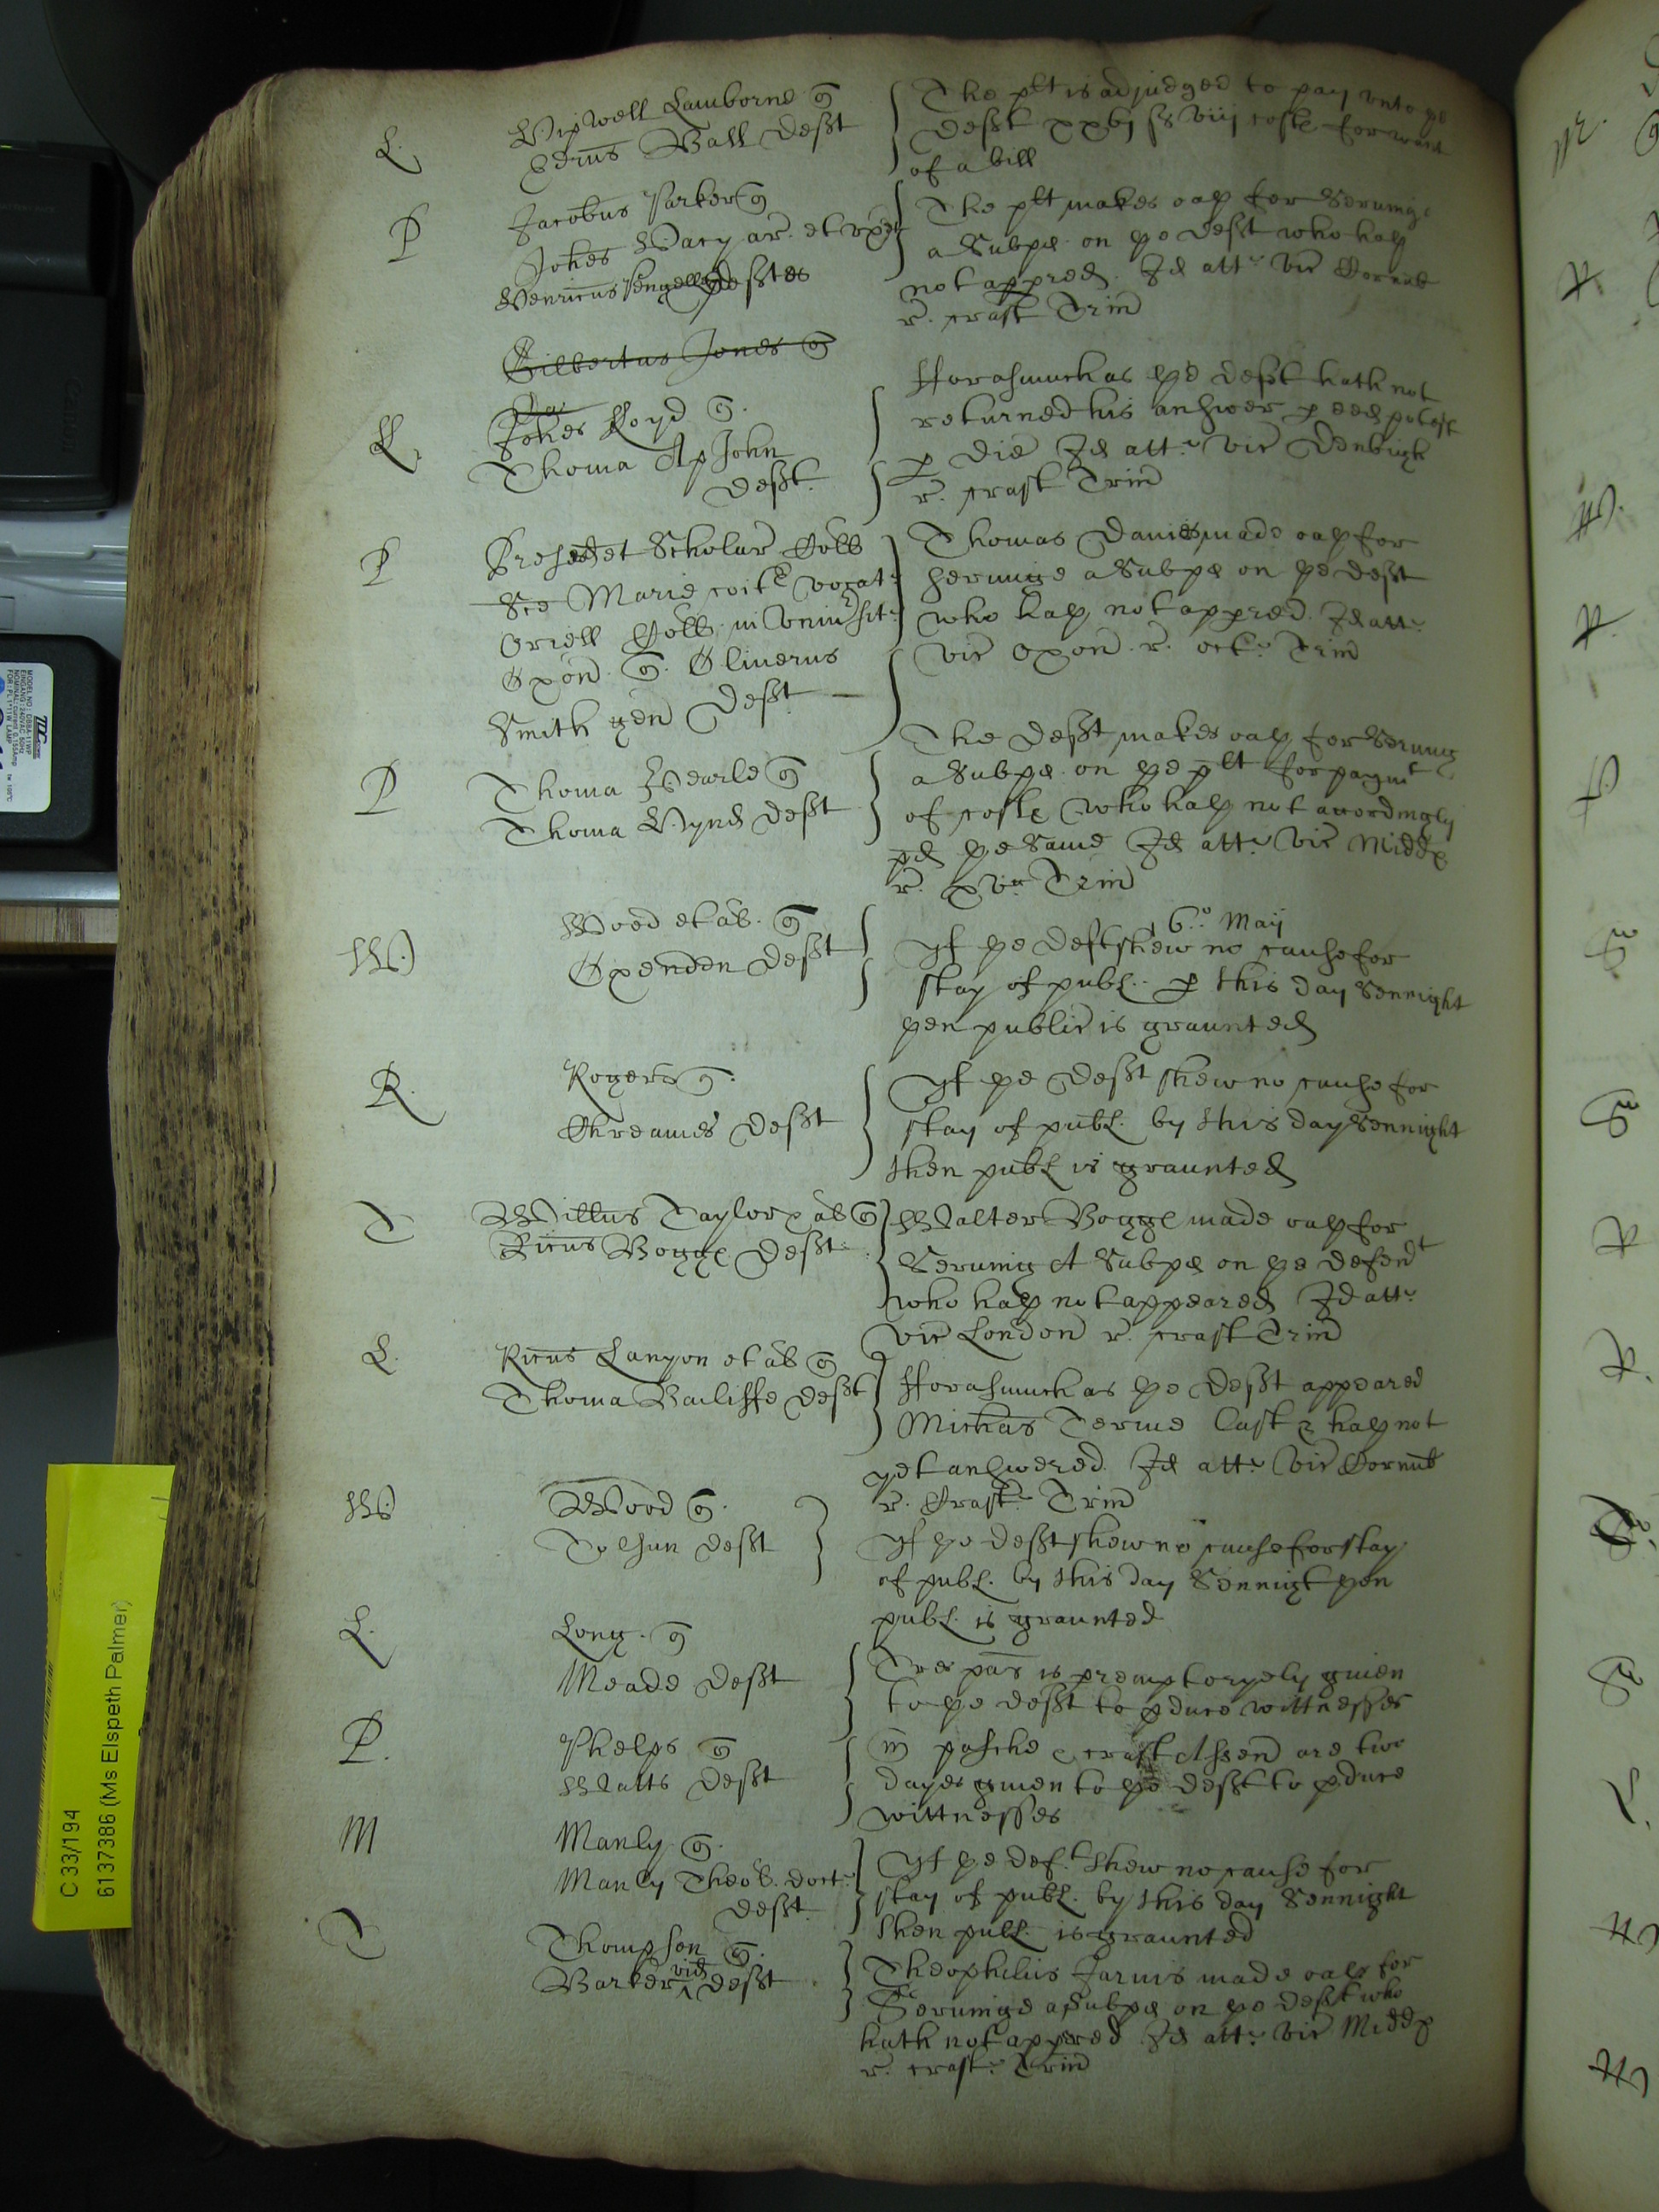 L. Lamborne
Edrus Ball Deft
The plt is adjudged to pay unto ye
Deft xxvj s viij costs for want
of a bill
P Jacobus Parker
Johes ar. et ux
Henricus Pengelley Deftes
The plt makes oath for Serving
a Subpe. on ye Deft who hath
not appred. Id att. vic Cornub
r. crast Trin
Gilbertus Jones
Ll. Johes Lloyd
Thoma Ap John
Deft.
fforasmuch as ye Deft hath not
returned his answer p ded potest
p Die Id att. vic Denbigh
r. crast Trin
P Preposit et Scholar Coll
Sce Marie coite vocat.
Oriell Coll. in Univsit.
Oxon. Oliverus
Smith gen Deft
Thomas Davies made oath for
serving a Subpe on ye Deft
who hath not appred. Id att.
vic Oxon. r. oct. Trin
P Thoma
Thoma Deft
The Deft makes oath for Serving
a Subpe. on ye plt for paymt
of costs who hath not accordingly
pd ye same Id att. vic Middx
r. xv Trin
6o May
W Wood et al.
Oxenden Deft
Yf ye Deft shew no cause for
stay of publ. p this day Sennight
then public is graunted
R. Rogers
Deft
Yf ye Deft shew no cause for
stay of publ. by this day Sennight
then publ is graunted
T Willus Taylor al
Ricus Bogge Deft
Walter Bogge made oath for
Serving A Subpe on ye Defendt
who hath not appeared Id att.
vic London r. crast Trin
L. Ricus Lanyon et al
Thoma Bailiffe Deft
fforasmuch as ye Deft appeared
Michas Terme last & hath not
yet answered. Id att. vic Cornub
r. Crast. Trin
W Wood
Deft
Yf ye Deft shew no cause for stay
of publ. by this day Sennigt then
publ. is graunted
L. Long.
Meade Deft
Tres pas is premptoryely given
to ye deft to pduce wittnesses
P. Phelps
Watts Deft
m pasche & crast Ascen are two
dayes given to ye Deft to pduce
wittnesses
M Manly.
Manly Theol. doct.
Deft.
Yf ye Deft. shew no cause for
stay of publ. by this day Sennight
then publ. is graunted
T Thompson
Barker vid Deft
Theophilus Jarvis made oath for
Serving a Subpe on ye Deft who
hath not appered Id att. vic Middx
r. crast. Trin
C 33/194
6137386 (Ms Elspeth Palmer)